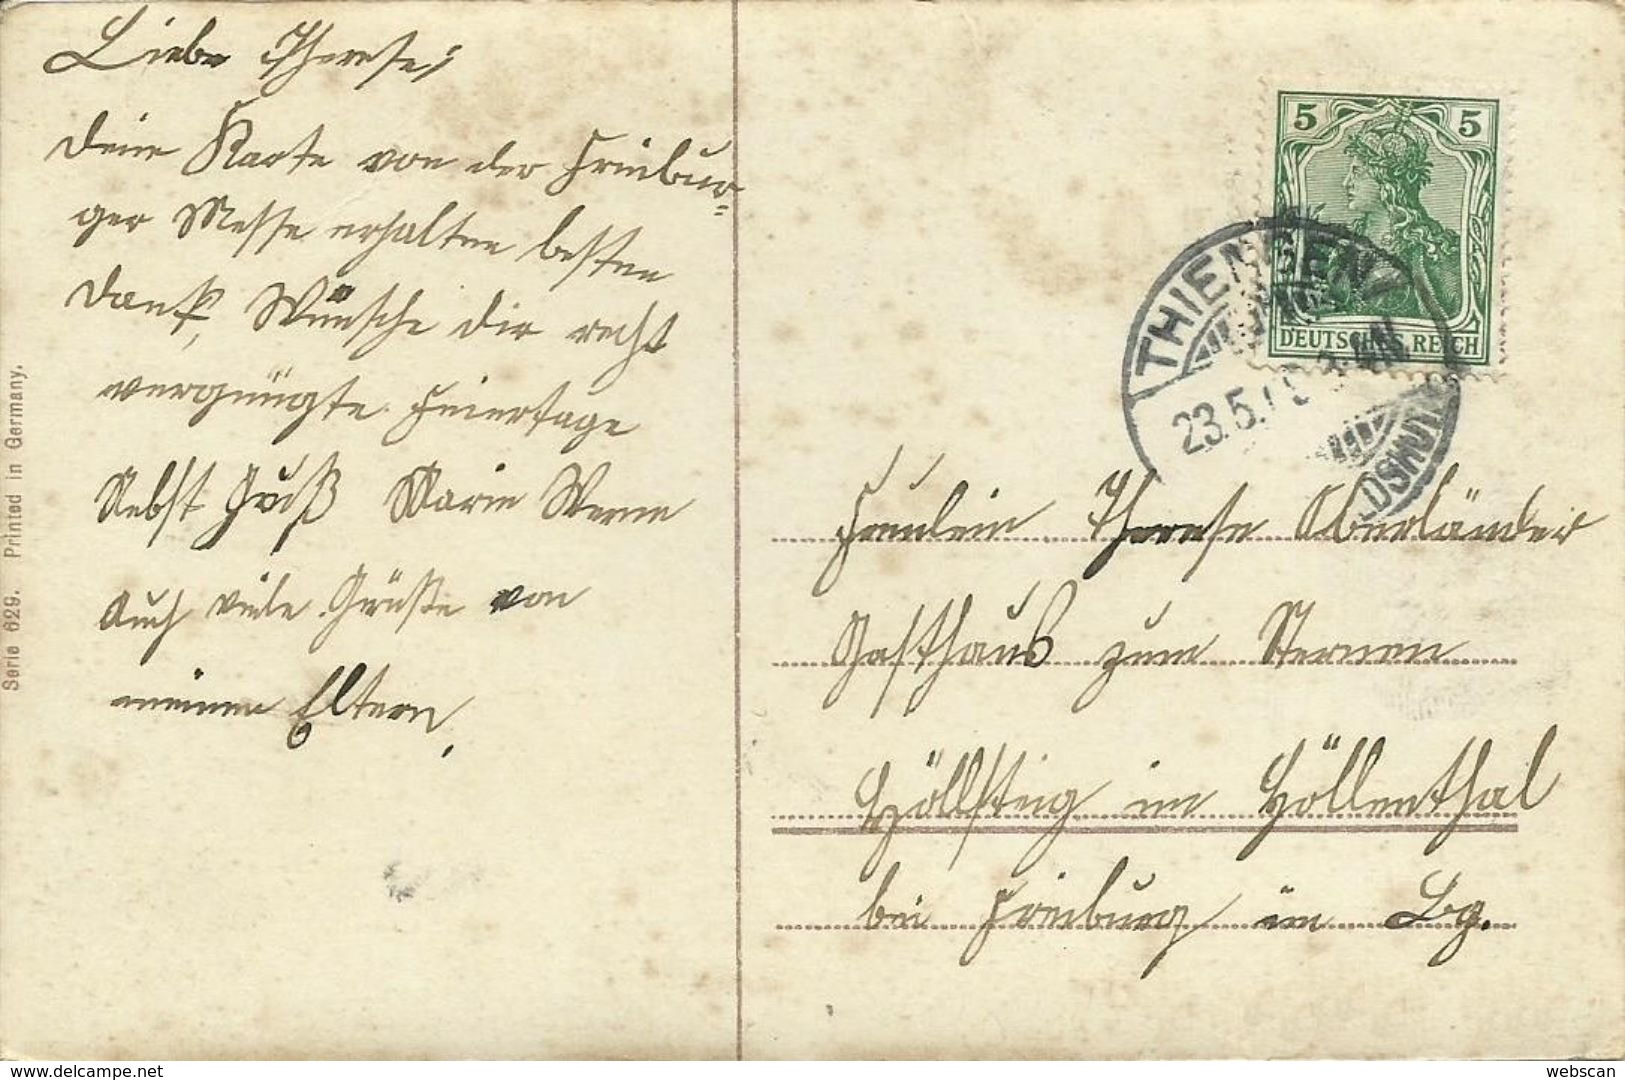 Liebe Therese!
Deine Karte von der Freibur=
ger Messe erhalten besten
Dank, Wünsche dir recht
vergnügte Feiertage
Nebst Gruß Marie
Auch viele Grüße von
meinen Eltern.
Serie 629. Printed in Germany.
5 5
DEUTSCHES REICH
THIENGEN
23.5.
Fräulein Therese Oberländer
Gasthaus zum Sternen
Höllsteig im Höllenthal
bei Freiburg im Bg.
www.delcampe.net
webscan